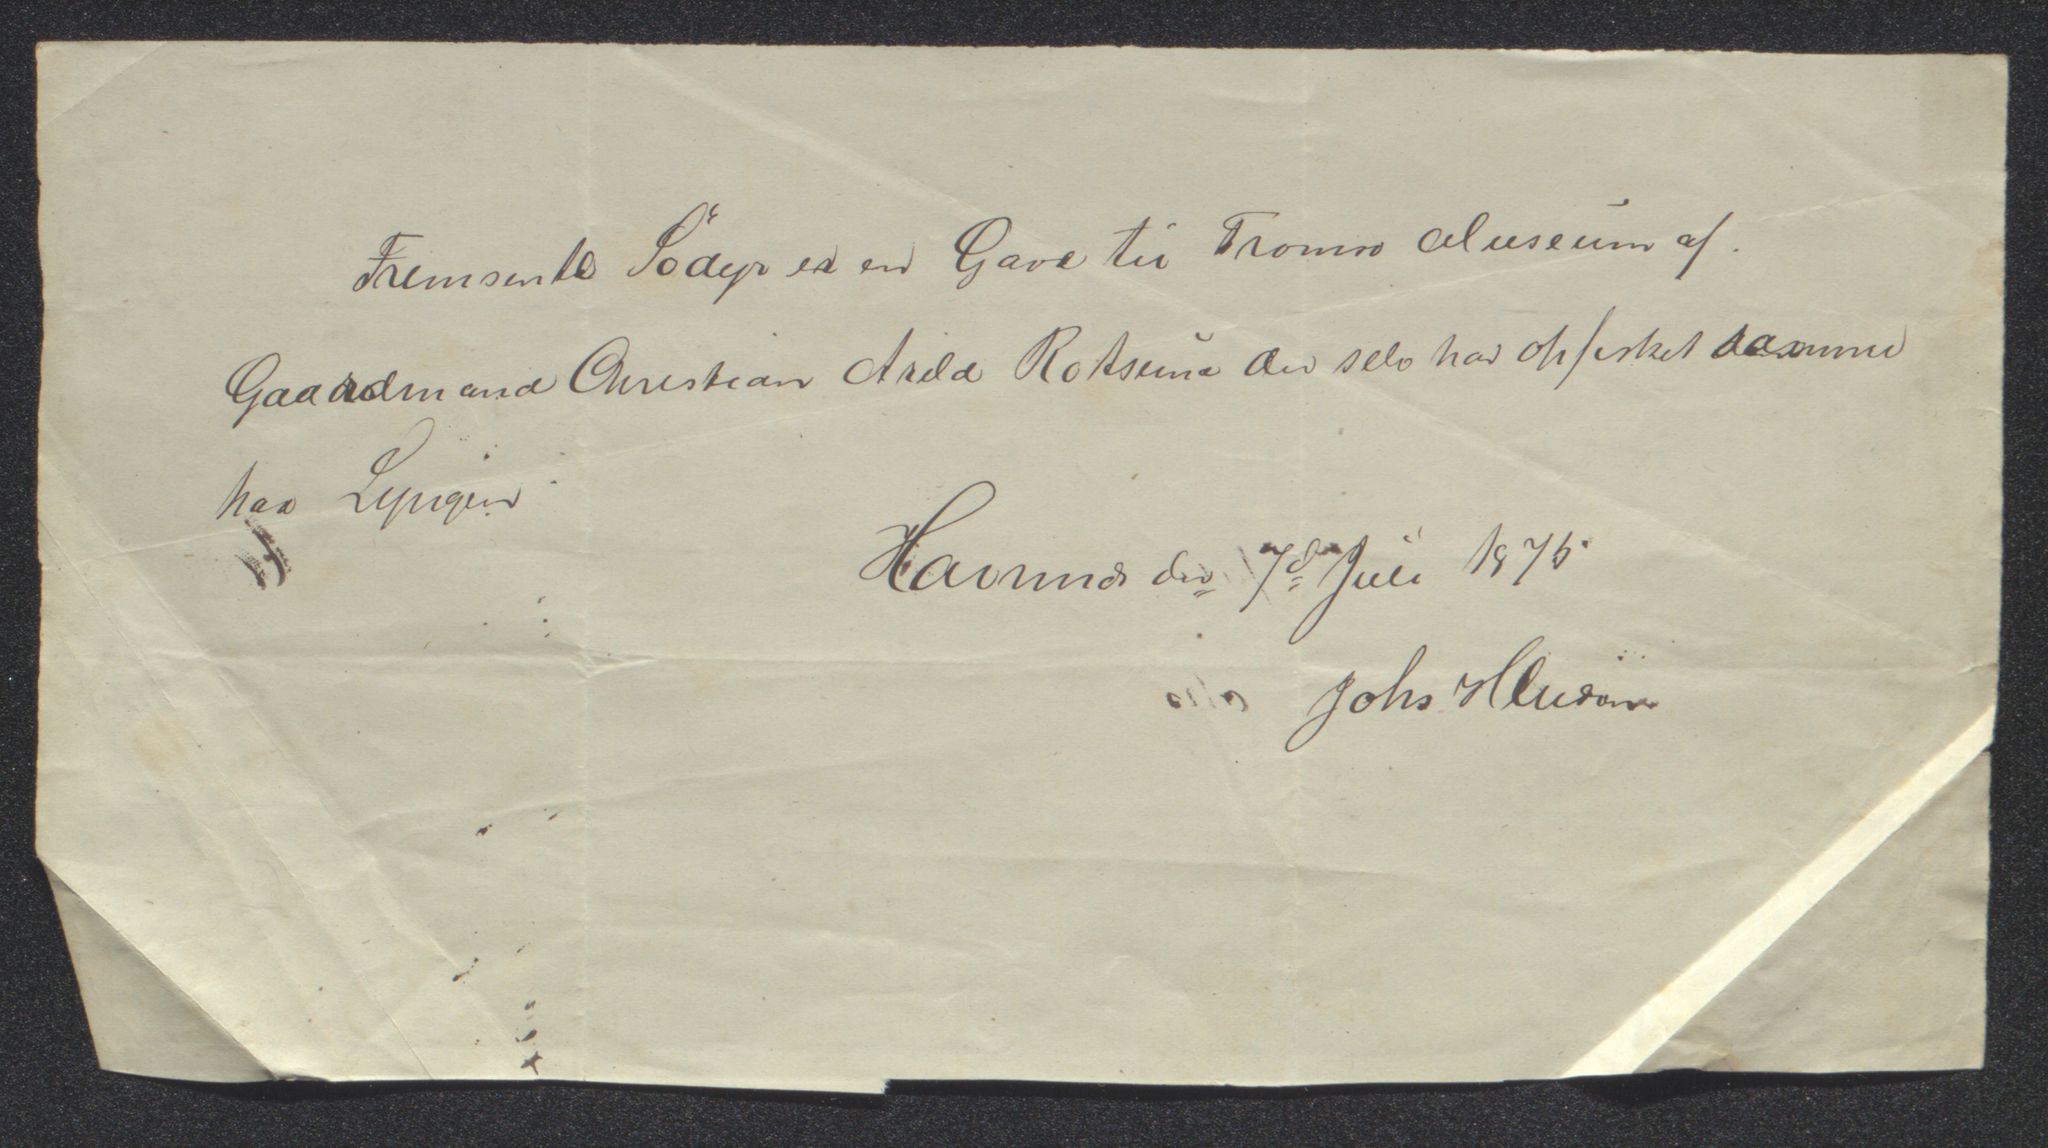 Fremsente Södyr er en Gave til Tromsø Museum af.
Gaardmand Christian Arild Rotsund der selv har opfisket samme
har Lyngen
Havnnes den 7d Juli 1875
Johs H